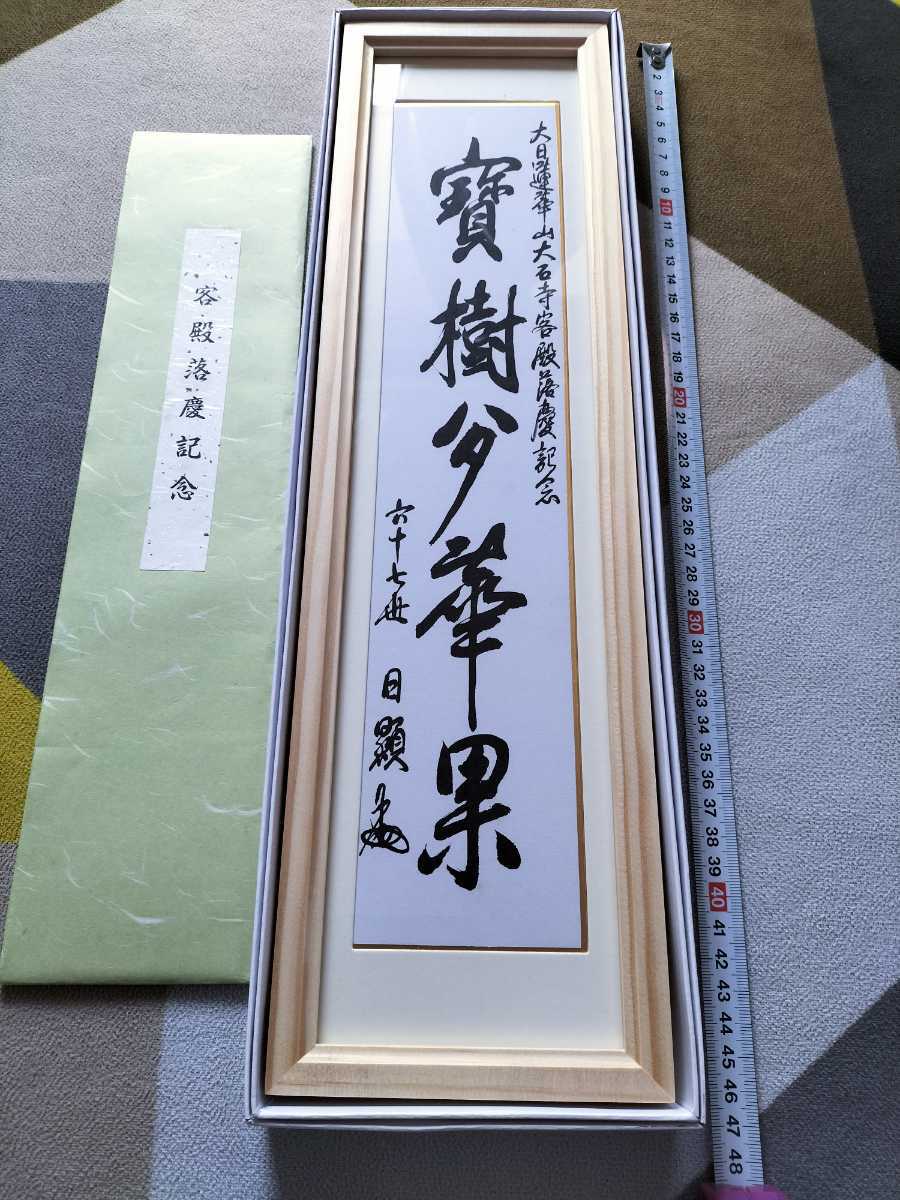 大日蓮華山大石寺客殿落慶記念
寶樹多華果
六十七世 日顯
客殿落慶記念
2
3
4
5
6
7
8
9
10
11
12
13
14
15
16
17
18
19
20
21
22
23
24
25
26
27
28
29
30
31
32
33
34
35
36
37
38
39
40
41
42
43
44
45
46
47
48